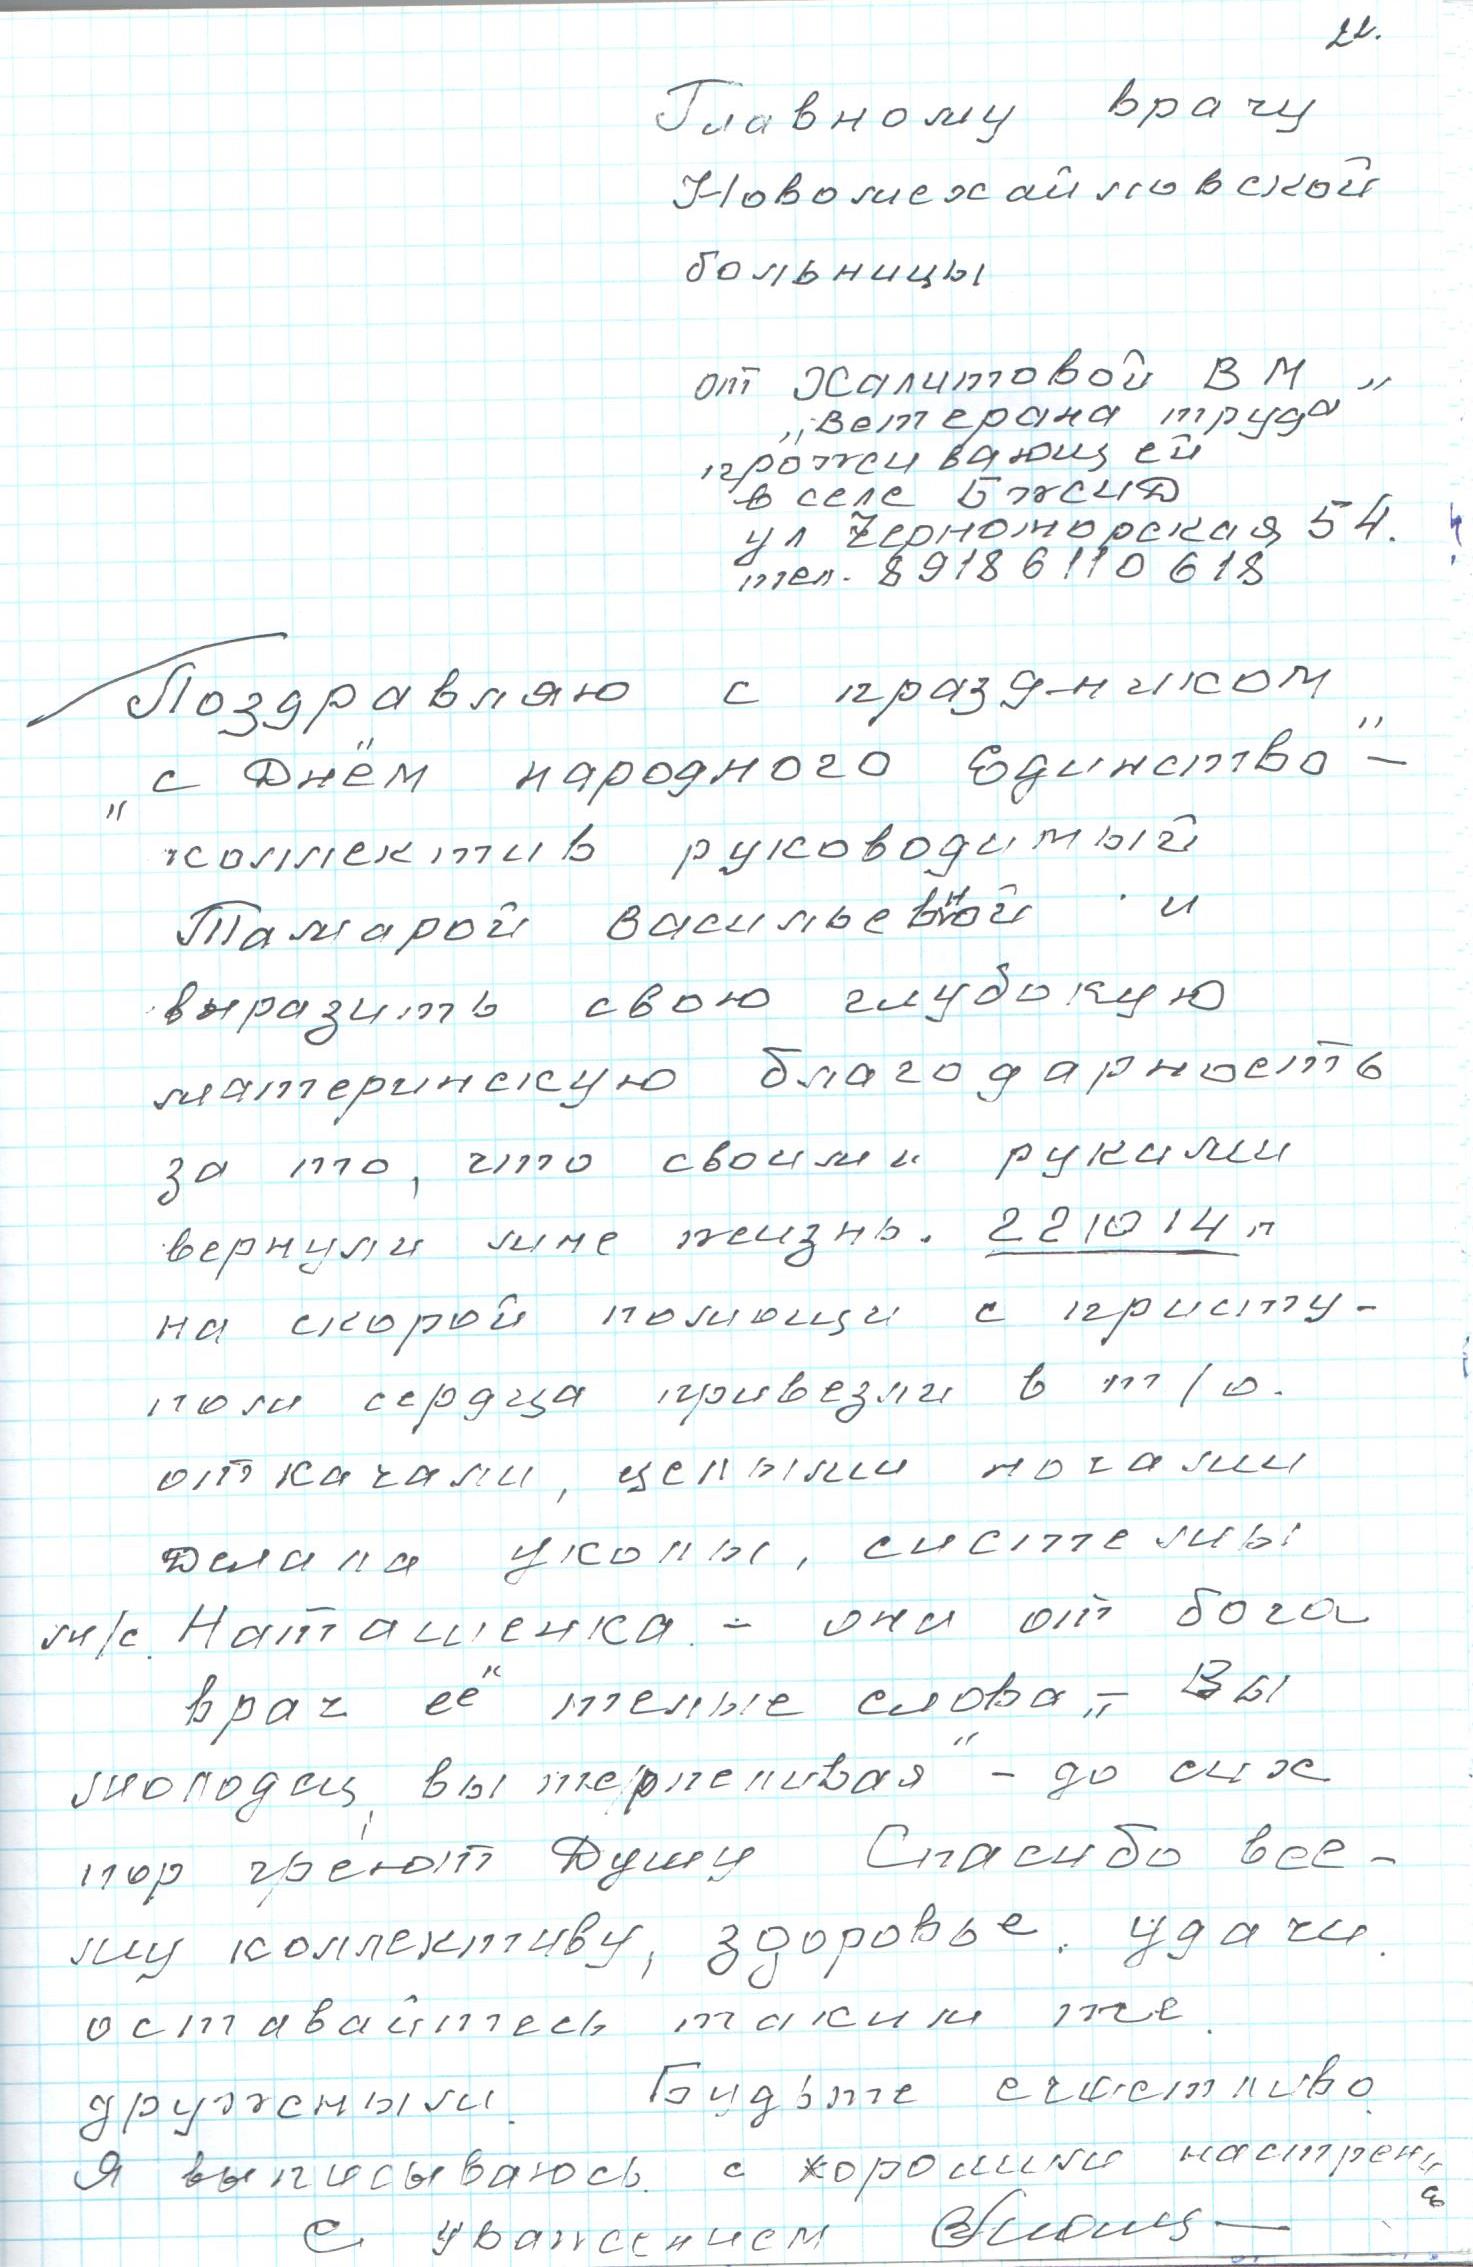 22.
Главному врачу
Новомехайловской
больницы
от Халитовой В М
„Ветерана труда"
проживающей
в селе Бжид
ул Черноморская 54.
тел. 89186110618
Поздравляю с праздником
„с Днём народного Единство" -
коллектив руководимый
Тамарой Васильевной и
выразить свою глубокую
материнскую благодарность
за то, что своими руками
вернули мне жизнь. 221014 г
на скорой помощи с присту-
пом сердца привезли в т/о.
откачали, целыми ночами
делала уколы, системы
м/с. Наташенка - они от бога
врач её теплые слова „- Вы
молодец, вы терпеливая" - до сих
пор греют Душу Спасибо все-
му коллективу, здоровье. удачи.
оставайтесь таким же.
дружными. Будьте счастливо.
Я выписываюсь. с хорошим настрени
ем
С уважением